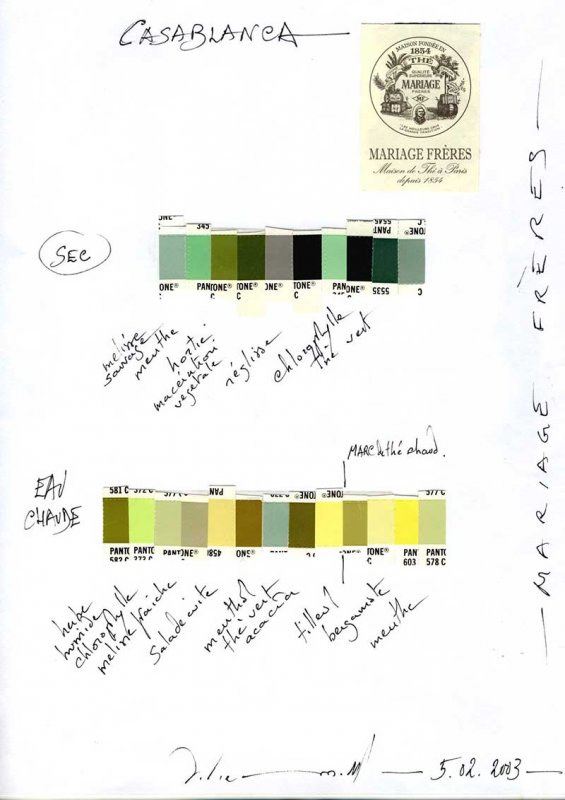 CASABLANCA
MAISON FONDÉE EN
1854
THÉ
QUALITÉ
SUPÉRIEURE
MARIAGE
FRÈRES
MF
MARIAGE FRÈRES
Maison de Thé à Paris
depuis 1854
MARIAGE FRÈRES
SEC
345
PANT
5545
TONE®
C
PANT
TONE®
C
TONE®
C
5535
C
mélisse
sauvage
menthe
hortie
macération
végétale
réglisse
chlorophylle
thé vert
MARC de thé chaud.
EAU
CHAUDE
581 C
372 C
577 C
PAN
TONE®
577 C
PANTO
582 C
PANTO
372 C
PANTONE®
4585
TONE®
C
TONE®
PAN
603
PANTO
578 C
herbe
humide
chlorophylle
mélisse fraîche
Salade cuite
menthol
thé vert
acacia
tilleul
bergamote
menthe
5.02.2003